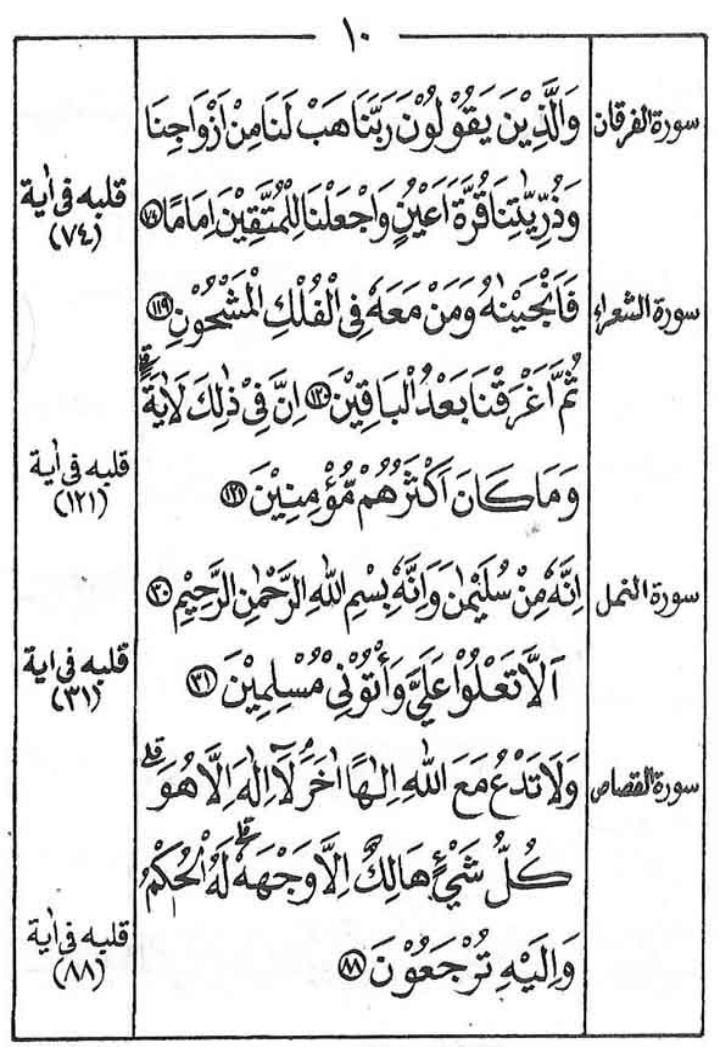 ١٠
سورة الفرقان
وَالَّذِيْنَ يَقُوْلُوْنَ رَبَّنَا هَبْ لَنَا مِنْ اَزْوَاجِنَا
وَذُرِّيّٰتِنَا قُرَّةَ اَعْيُنٍ وَاجْعَلْنَا لِلْمُتَّقِيْنَ اِمَامًا ٧٤
قلبه فى أية
(٧٤)
سورة الشعراء
فَاَنْجَيْنٰهُ وَمَنْ مَعَهٗ فِى الْفُلْكِ الْمَشْحُوْنِ ١١٩
ثُمَّ اَغْرَقْنَا بَعْدُ الْبَاقِيْنَ ١٢٠ اِنَّ فِيْ ذٰلِكَ لَاٰيَةً ۗ
وَمَا كَانَ اَكْثَرُهُمْ مُّؤْمِنِيْنَ ١٢١
قلبه فى أية
(١٢١)
سورة النمل
اِنَّهٗ مِنْ سُلَيْمٰنَ وَاِنَّهٗ بِسْمِ اللّٰهِ الرَّحْمٰنِ الرَّحِيْمِ ٣٠
اَلَّا تَعْلُوْا عَلَيَّ وَأْتُوْنِيْ مُسْلِمِيْنَ ٣١
قلبه فى اية
(٣١)
سورة القصاص
وَلَا تَدْعُ مَعَ اللّٰهِ اِلٰهًا اٰخَرَ ۘ لَآ اِلٰهَ اِلَّا هُوَ ۗ
كُلُّ شَيْءٍ هَالِكٌ اِلَّا وَجْهَهٗ ۗ لَهُ الْحُكْمُ
وَاِلَيْهِ تُرْجَعُوْنَ ٨٨
قلبه فى أية
(٨٨)